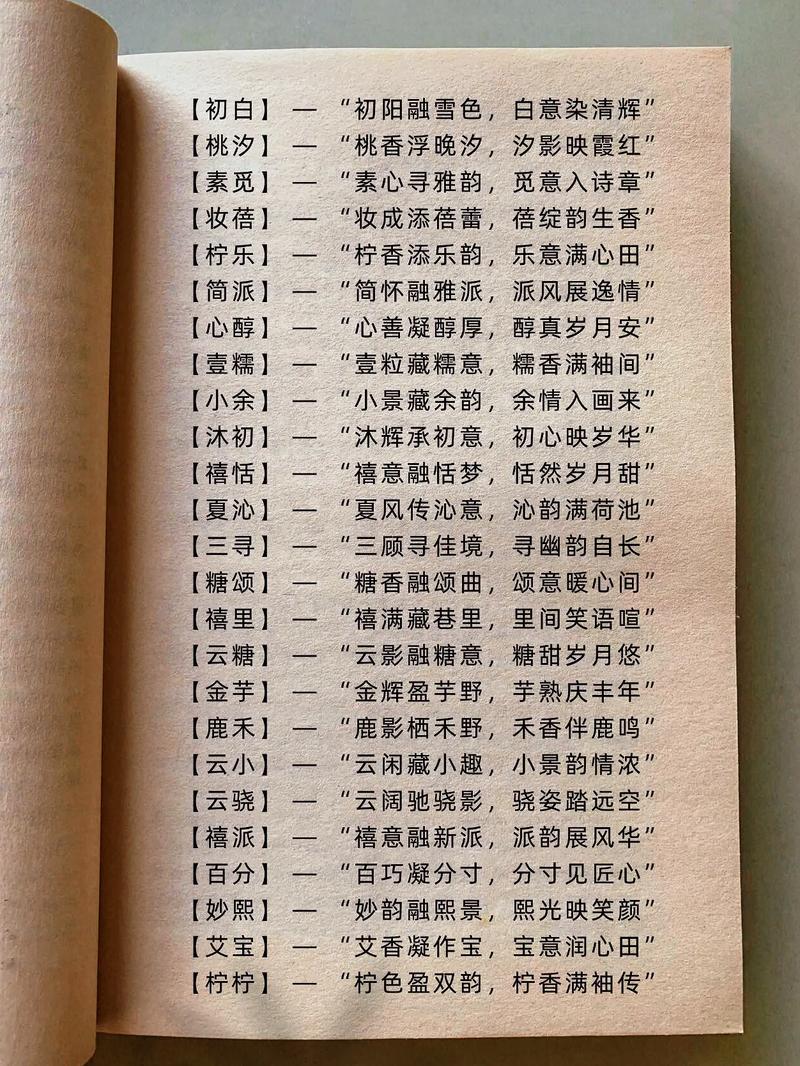 【初白】 — “初阳融雪色，白意染清辉”
【桃汐】 — “桃香浮晚汐，汐影映霞红”
【素觅】 — “素心寻雅韵，觅意入诗章”
【妆蓓】 — “妆成添蓓蕾，蓓绽韵生香”
【柠乐】 — “柠香添乐韵，乐意满心田”
【简派】 — “简怀融雅派，派风展逸情”
【心醇】 — “心善凝醇厚，醇真岁月安”
【壹糯】 — “壹粒藏糯意，糯香满袖间”
【小余】 — “小景藏余韵，余情入画来”
【沐初】 — “沐辉承初意，初心映岁华”
【禧恬】 — “禧意融恬梦，恬然岁月甜”
【夏沁】 — “夏风传沁意，沁韵满荷池”
【三寻】 — “三顾寻佳境，寻幽韵自长”
【糖颂】 — “糖香融颂曲，颂意暖心间”
【禧里】 — “禧满藏巷里，里间笑语喧”
【云糖】 — “云影融糖意，糖甜岁月悠”
【金芋】 — “金辉盈芋野，芋熟庆丰年”
【鹿禾】 — “鹿影栖禾野，禾香伴鹿鸣”
【云小】 — “云闲藏小趣，小景韵情浓”
【云骁】 — “云阔驰骁影，骁姿踏远空”
【禧派】 — “禧意融新派，派韵展风华”
【百分】 — “百巧凝分寸，分寸见匠心”
【妙熙】 — “妙韵融熙景，熙光映笑颜”
【艾宝】 — “艾香凝作宝，宝意润心田”
【柠柠】 — “柠色盈双韵，柠香满袖传”